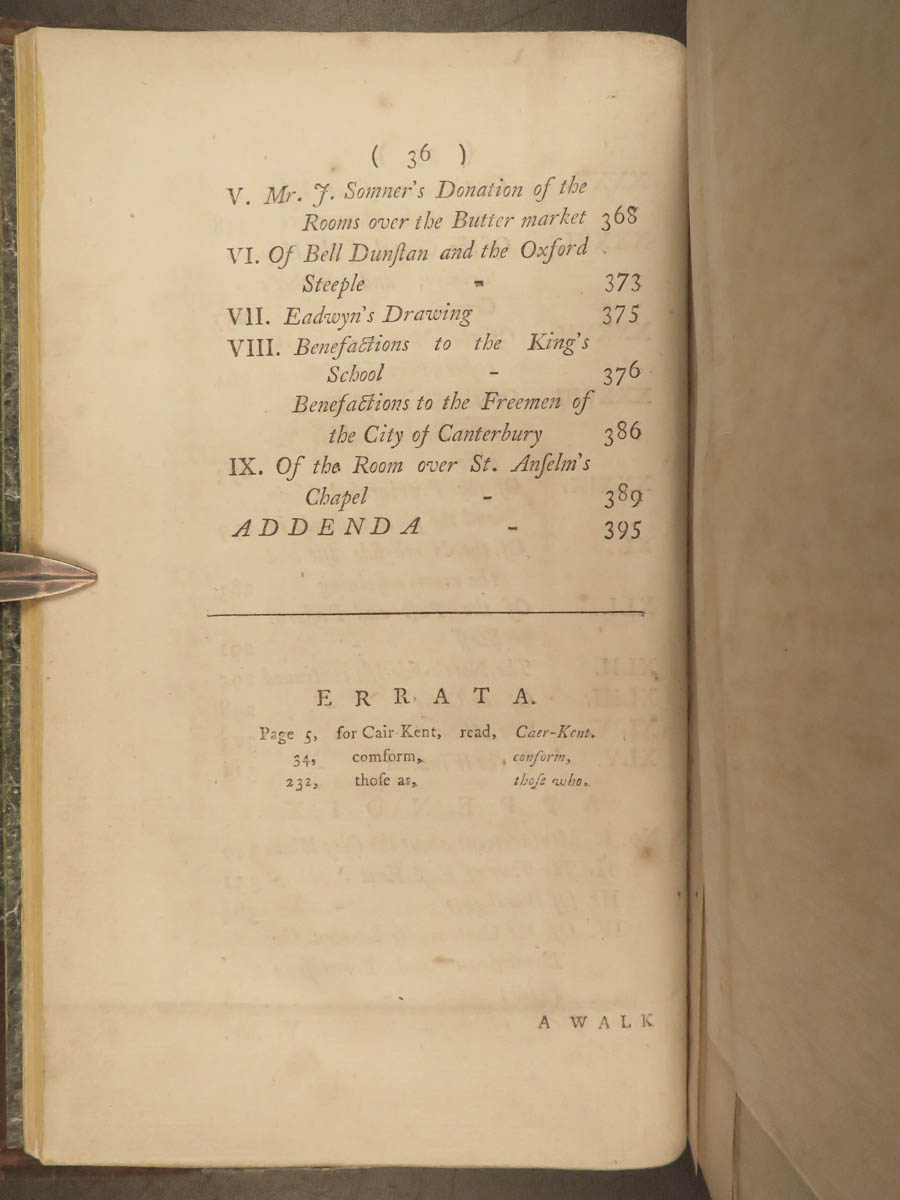 ( 36 )
V. Mr. J. Somner's Donation of the
Rooms over the Butter market 368
VI. Of Bell Dunſtan and the Oxford
Steeple - 373
VII. Eadwyn's Drawing 375
VIII. Benefactions to the King's
School - 376
Benefactions to the Freemen of
the City of Canterbury 386
IX. Of the Room over St. Anſelm's
Chapel - 389
ADDENDA - 395
ERRATA.
Page 5, for Cair-Kent, read, Caer-Kent.
34, comform, conform,
232, thoſe as, thoſe who.
A WALK